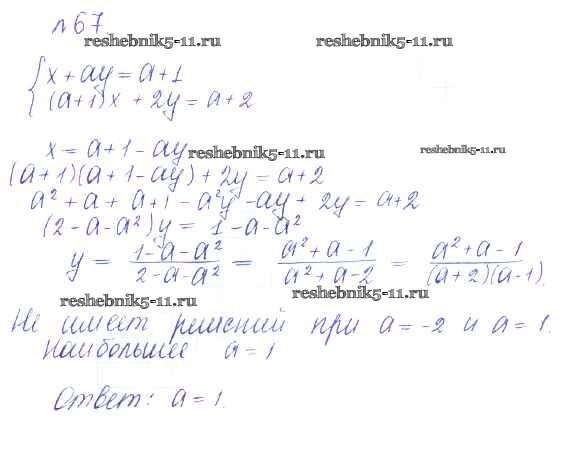 №67
reshebnik5-11.ru reshebnik5-11.ru
{ x + ay = a + 1
(a+1)x + 2y = a + 2
x = a + 1 - ay reshebnik5-11.ru reshebnik5-11.ru
(a+1)(a+1-ay) + 2y = a + 2
a² + a + a + 1 - a²y - ay + 2y = a + 2
(2 - a - a²)y = 1 - a - a²
y = (1-a-a²)/(2-a-a²) = (a²+a-1)/(a²+a-2) = (a²+a-1)/((a+2)(a-1)).
reshebnik5-11.ru reshebnik5-11.ru
Не имеет решений при a = -2 и a = 1.
Наибольшее a = 1
Ответ: a = 1.